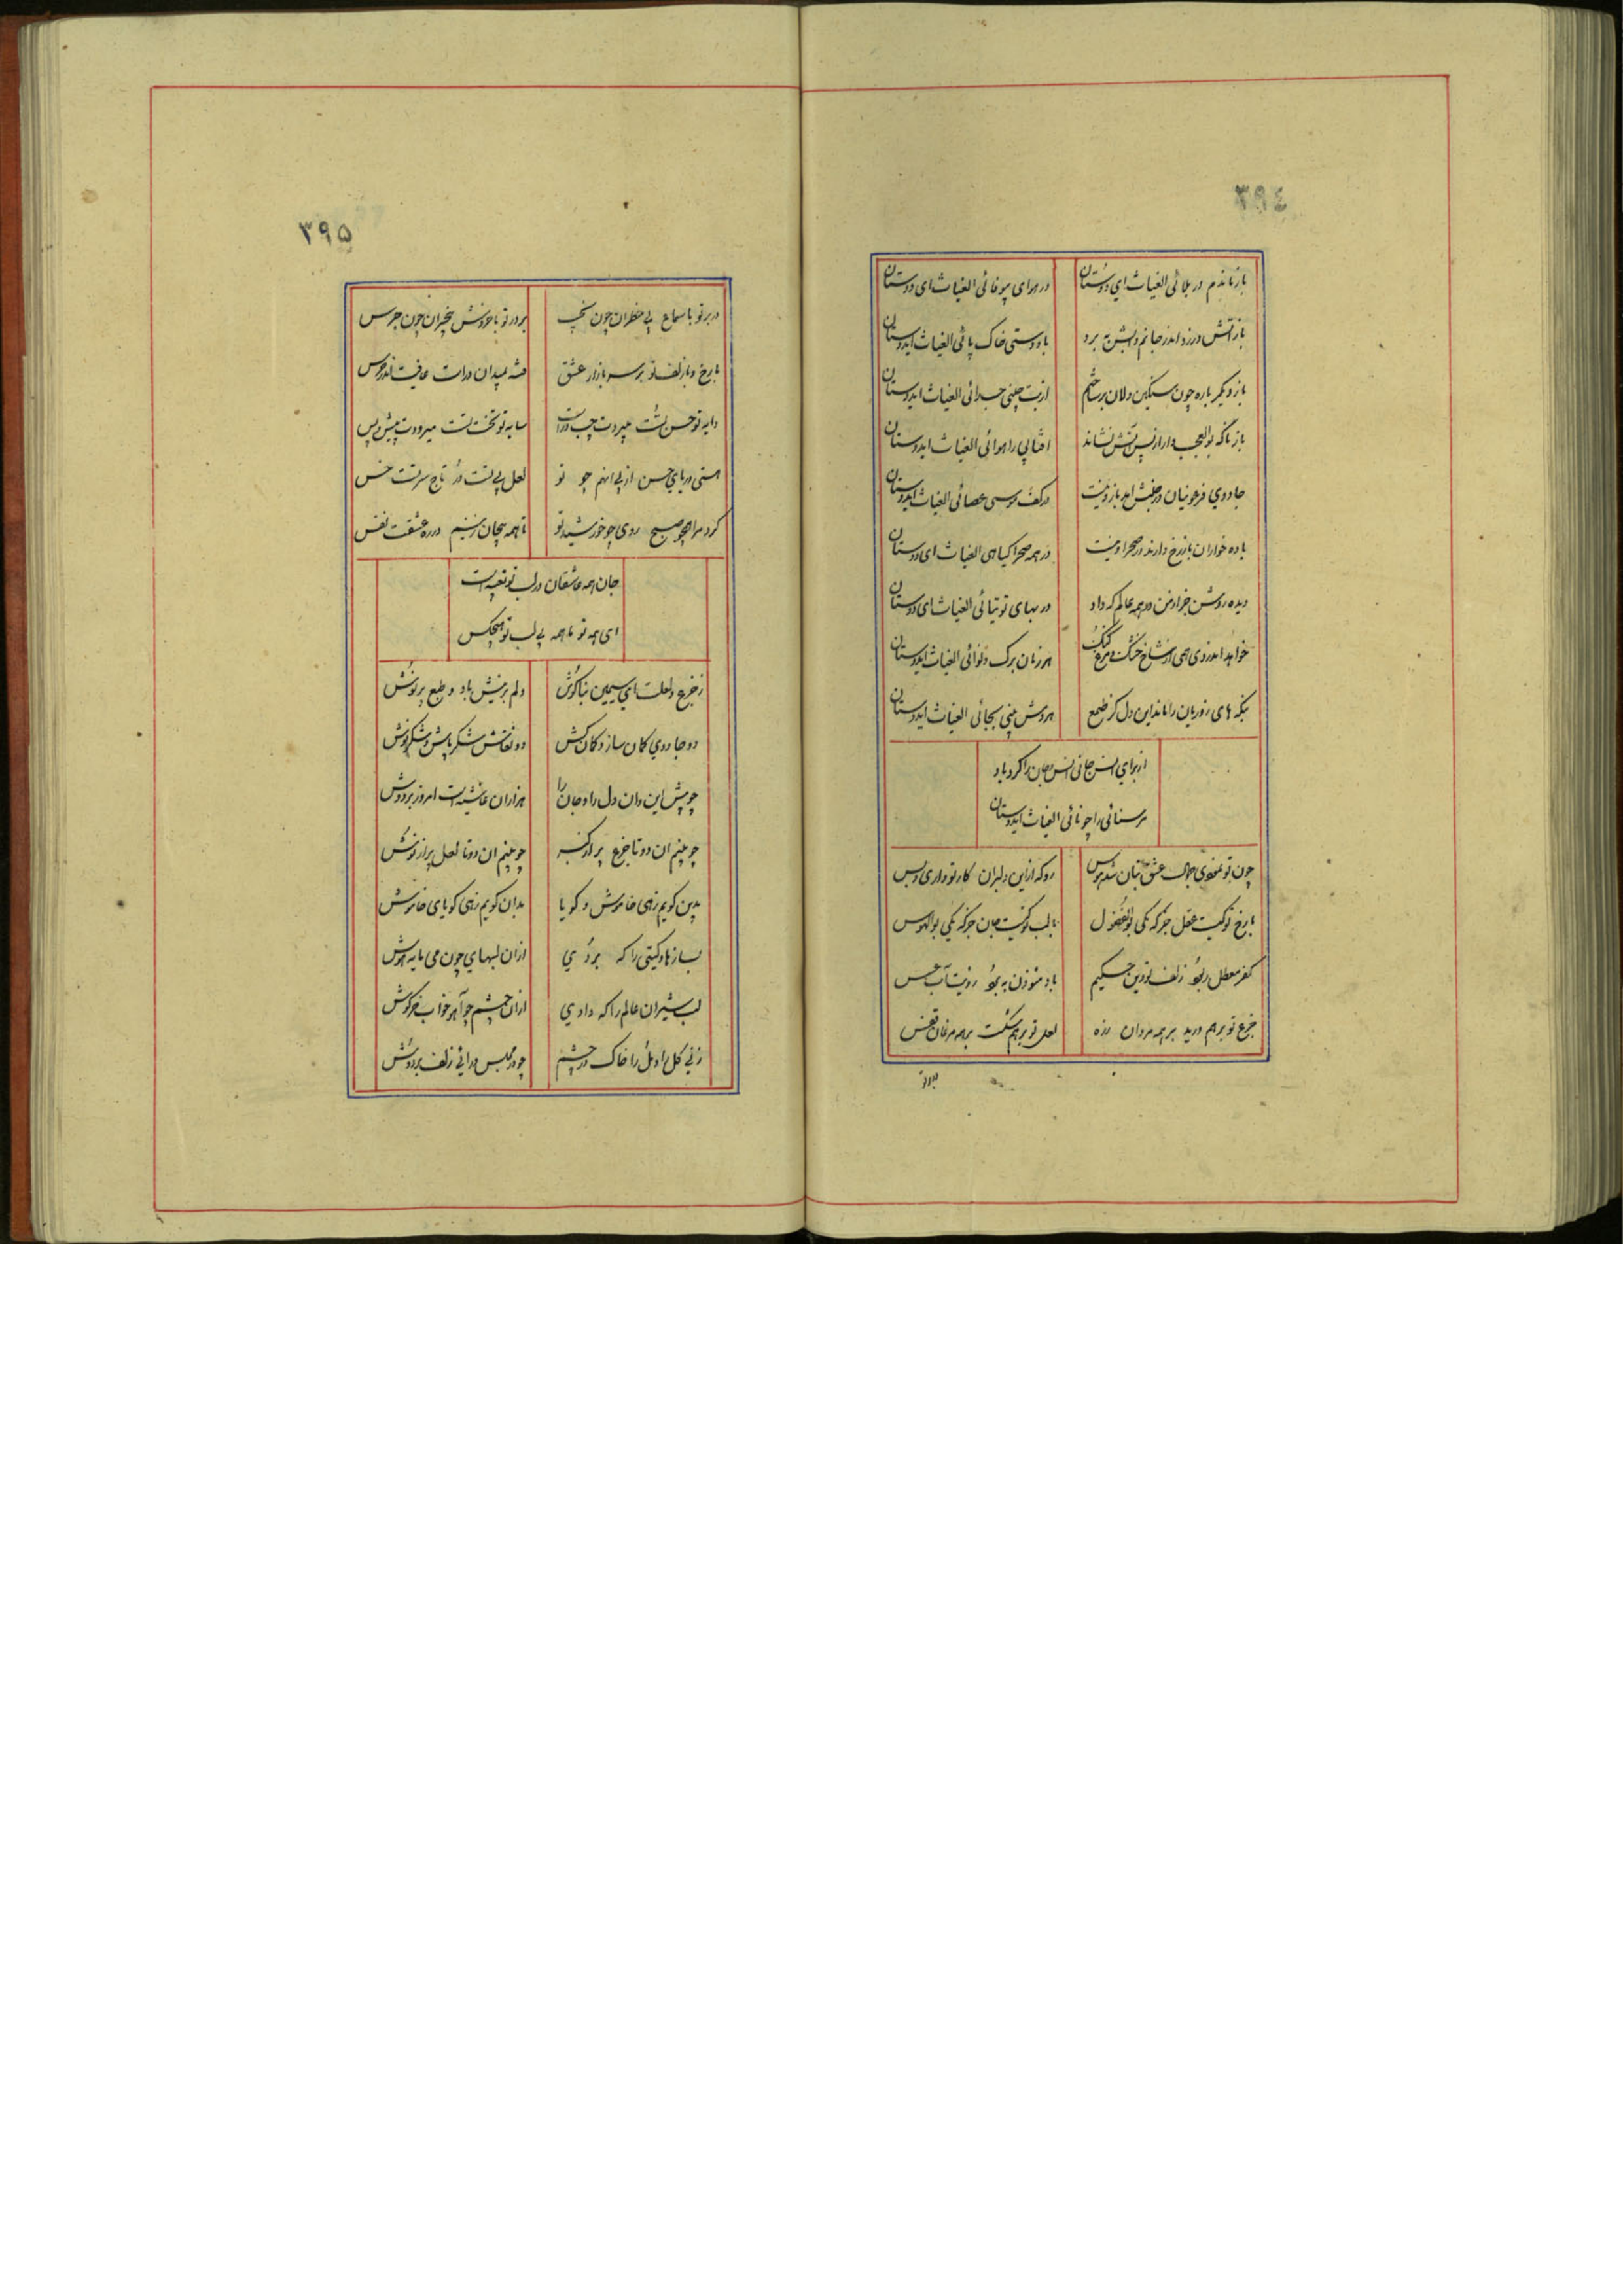 ٣٩٤
باز ماندم در بلائی الغیاث ای دوستان
در هوای بیوفائی الغیاث ای دوستان
باز آتش درزد اندر جانم و آبش ببرد
باد دستی خاک پائی الغیاث ایدوستان
باز دیگر باره چون سنگین دلان بر ساختم
از بت چینی جدائی الغیاث ایدوستان
باز ناگه بوالعجب وار از پس آتش نشاند
افتابی را هوائی الغیاث ایدوستان
جادوی فرعونیان در جنبش امد باز و نیست
در کف موسی عصائی الغیاث ایدوستان
باده خواران باز رخ دارند در صحرا و نیست
در همه صحرا کیاهی الغیاث ای دوستان
دیده روشن جز از من در همه عالم که داد
در بهای توتیائی الغیاث ای دوستان
خواهد اندر وی همی از شاخ خشک و مرغ کنگ
هر زمان برک و نوائی الغیاث ایدوستان
نیکه های زوریان را ماند این دل کز طمع
هر دمش بینی بجائی الغیاث ایدوستان
از برای انس جانی انس و جان را کرد باد
مر سنائی را چو نائی الغیاث ایدوستان
چون تو نمودی جمال عشق بتان شد هوس
رو که ازین دلبران کار تو داری و بس
با رخ تو کیست عقل جز که یکی بوالفضول
با لب تو کیست جان جز که یکی بوالهوس
کفر معطل ربود زلف تو دین حکیم
باد مؤذن ببرد رویت آب عسس
جزع تو بر هم درید بر همه مردان زره
لعل تو بر هم شکست بر همه مرغان قفس
٣٩٥
در بر تو با سماع بی خطران چون نخیب
بر در تو با خروش بیخبران چون جرس
با رخ و با زلف تو بر سر بازار عشق
فتنه بمیدان در است عافیت اندر حرس
دایه تو حسن تست میبردت چپ و راست
سایه تو بخت تست میرودت پیش و پس
استی دریای حسن از پی انهم چو تو
لعل پی تست در تاج سر تست خس
کرد مرا همچو صبح روی چو خورشید تو
تا همه بیجان زنیم در ره عشقت نفس
جان همه عاشقان در لب تو تعبیه است
ای همه تو ما همه بی لب تو هیچکس
ز جزع و لعلت ای سیمین بناکوش
دلم پر نیش باد و طبع پر نوش
دو جادوی کمان ساز و کمان کش
دو نقاش شکر پاش و شکر نوش
چو پیش این و ان دل داد و جان را
هزاران غاشیه است امروز بر دوش
چو بینم ان دو تا جزع پر از کبر
چو بینم ان دو تا لعل پر از نوش
بدین کویم زهی خاموش و کویا
بدان کویم زهی کویای خاموش
بسا زهاد کیتی را که بردی
ازان لبهای چون می مایه هوش
بسا شیران عالم را که دادی
ازان چشم چو آهو خواب خرکوش
زنی کل را و مل را خاک در چشم
چو در مجلس درائی زلف بر دوش